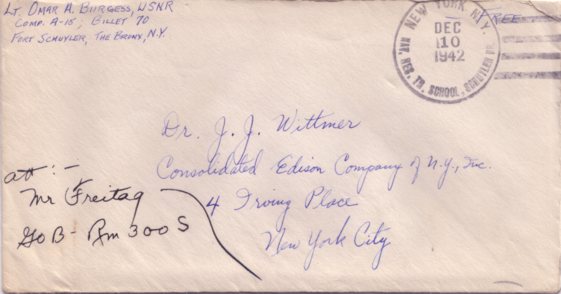 Lt. Omar A. Burgess, USNR
Comp. A-15; Billet 70
Fort Schuyler, The Bronx, N.Y.
Free
NEW YORK N.Y.
DEC
10
1942
NAV. RES. TR. SCHOOL, SCHUYLER BR.
Dr. J. J. Wittmer
Consolidated Edison Company of N.Y., Inc.
4 Irving Place
New York City
att: -
Mr Freitag
GOB - Rm 300 S